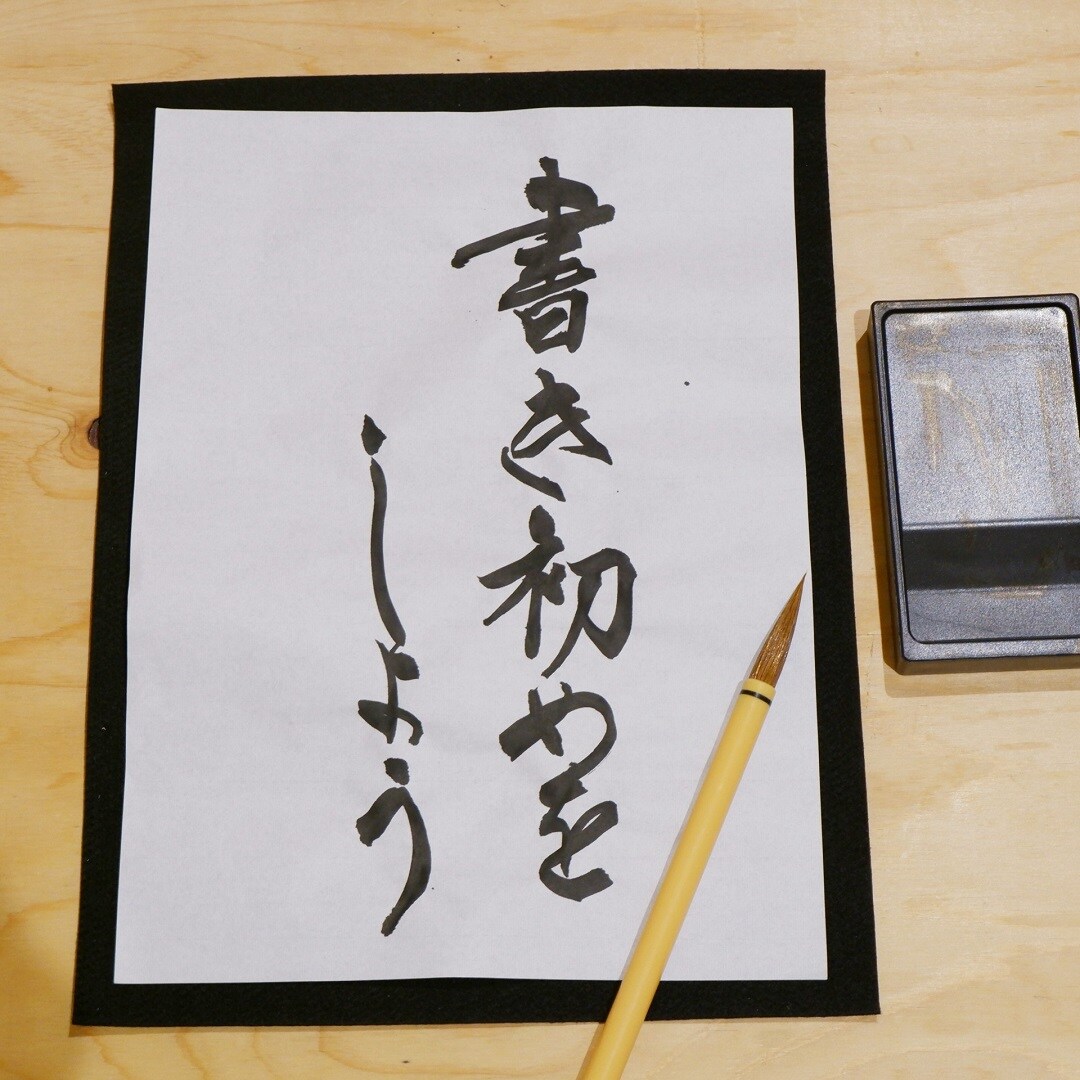 書き初めを
しよう